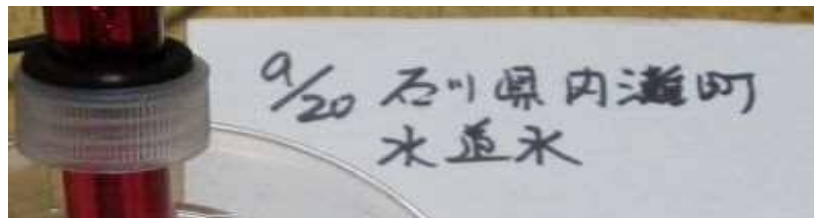 9/20 石川県内灘町
水道水